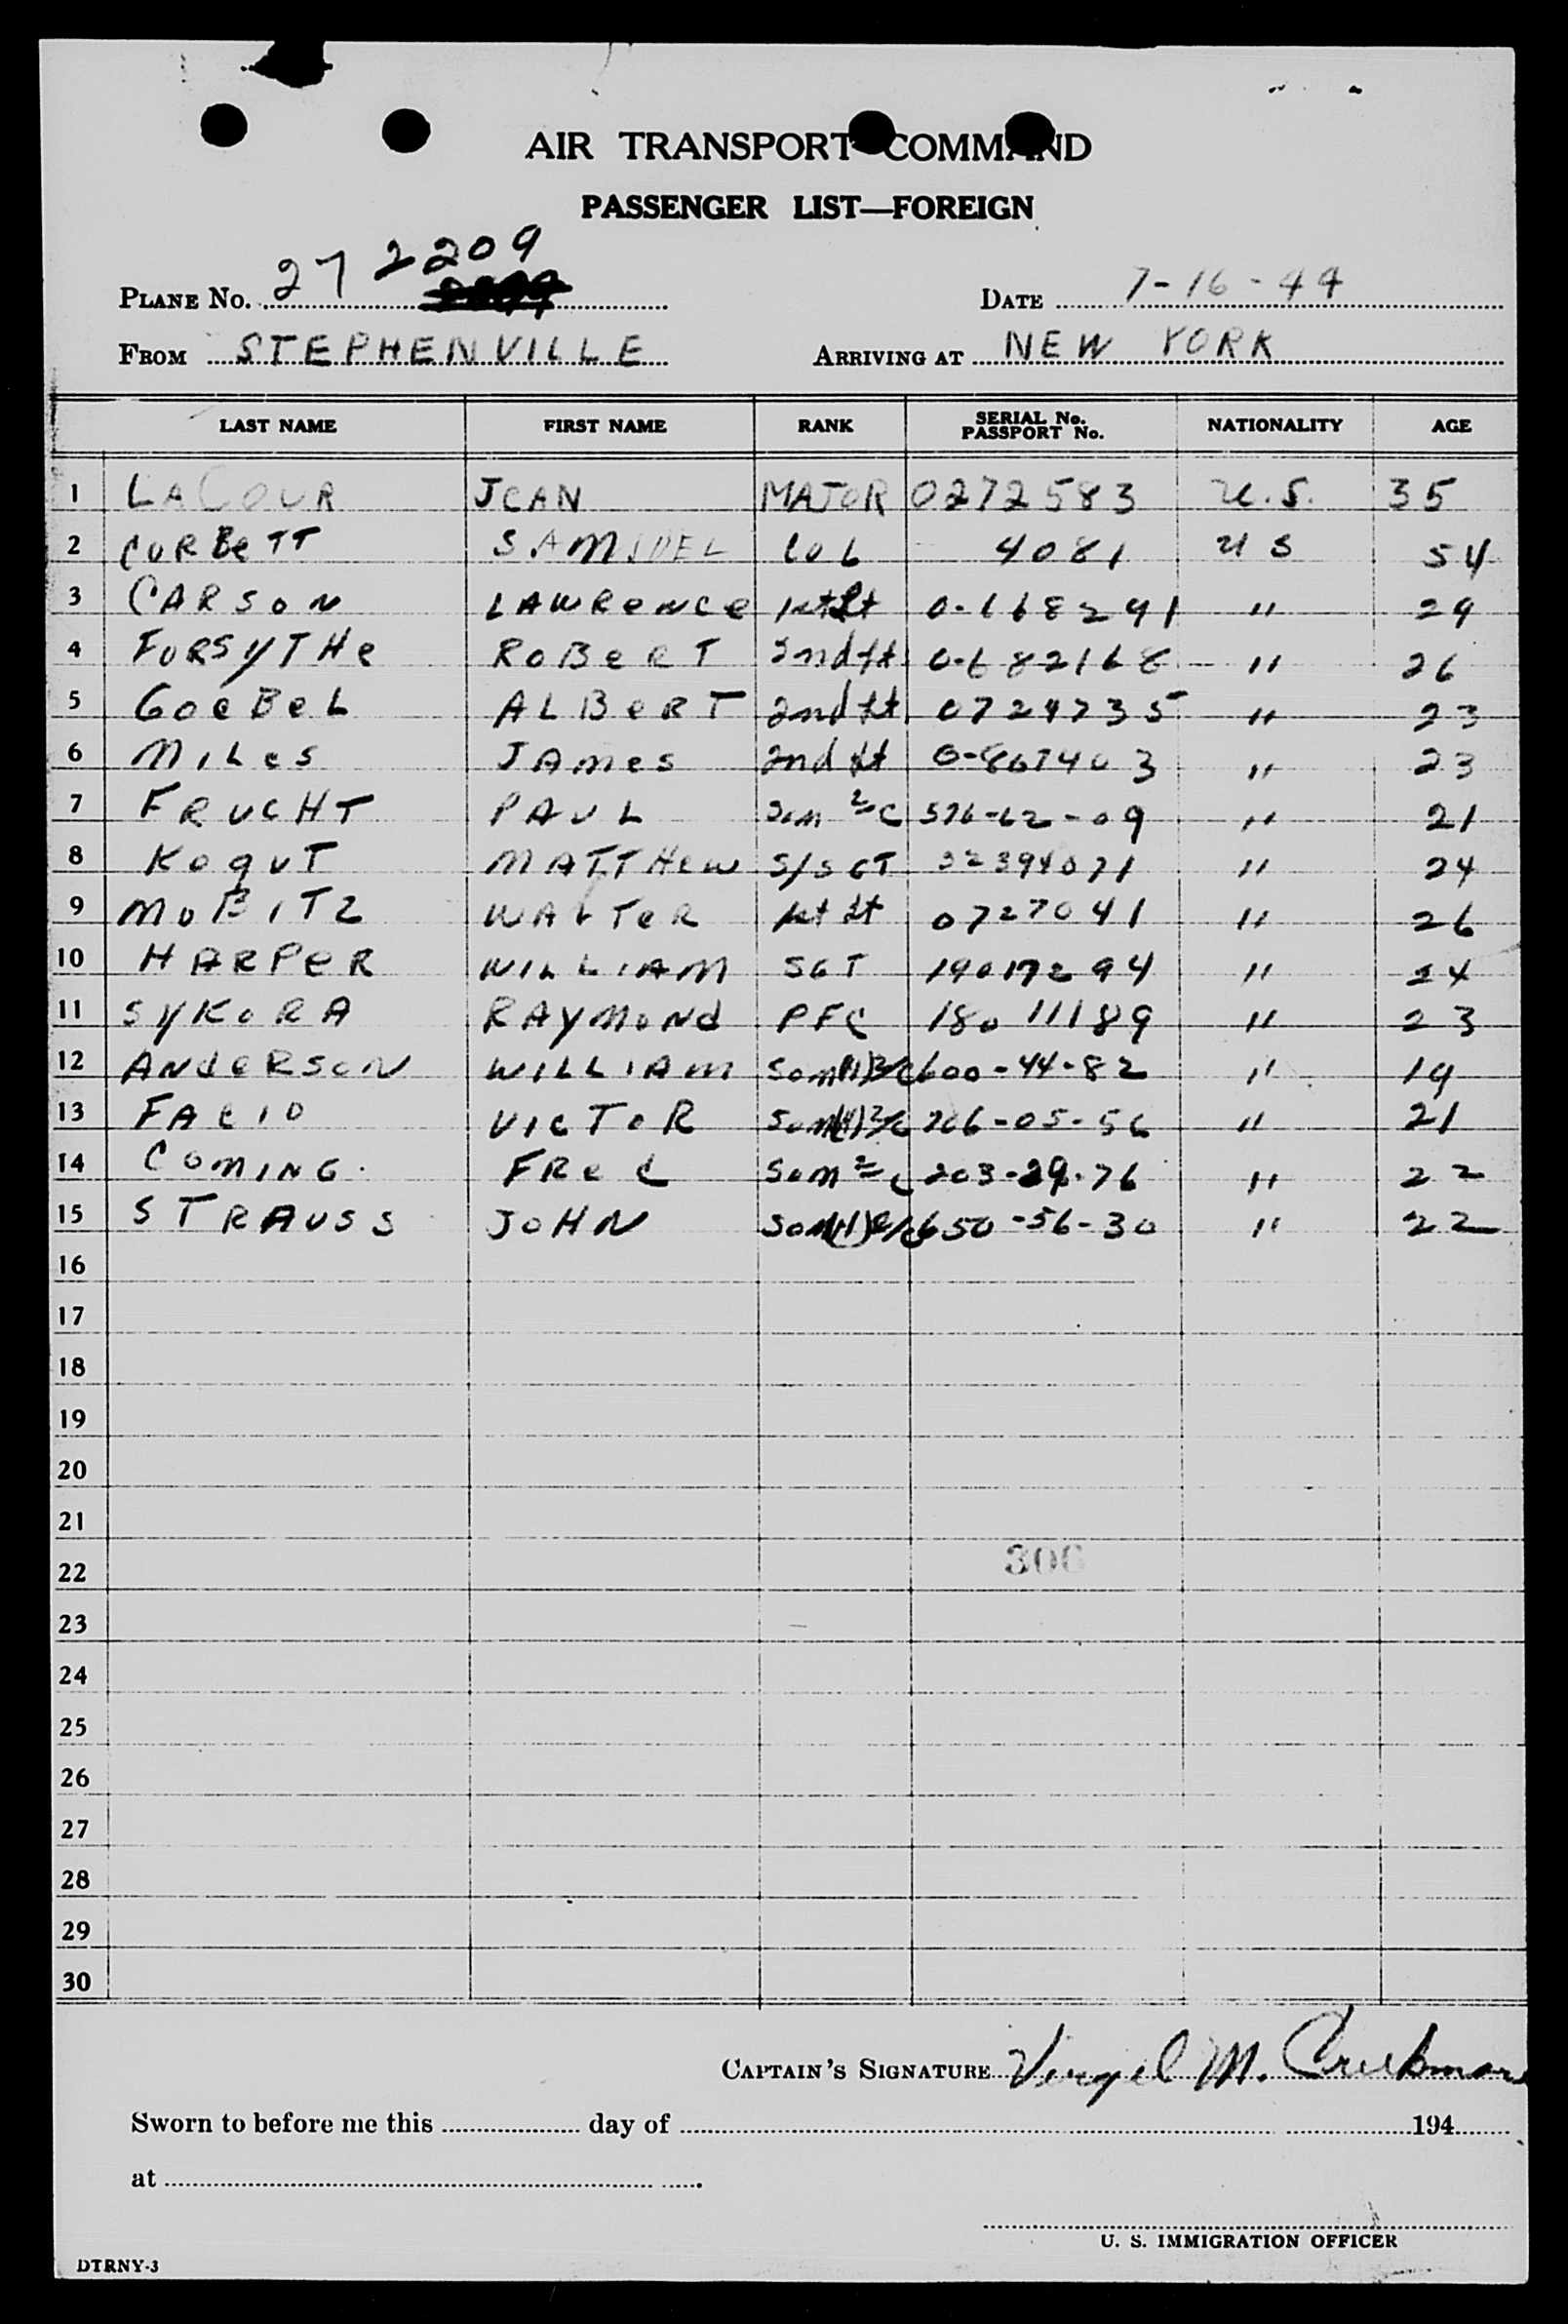 AIR TRANSPORT COMMAND
PASSENGER LIST—FOREIGN
PLANE No. 27 2209
DATE 7-16-44
FROM STEPHENVILLE
ARRIVING AT NEW YORK
LAST NAME FIRST NAME RANK SERIAL No. PASSPORT No. NATIONALITY AGE
1 LACOUR JEAN MAJOR 0272583 U.S. 35
2 CORBETT SAMUEL COL 4081 US 54
3 CARSON LAWRENCE 1st Lt 0-1168291 " 29
4 FORSYTHE ROBERT 2nd Lt 0-682168 " 26
5 GOEBEL ALBERT 2nd Lt 0724735 " 23
6 MILES JAMES 2nd Lt 0-867403 " 23
7 FRUCHT PAUL 2/C 576-62-09 " 21
8 KOGUT MATTHEW S/SGT 32394071 " 24
9 MOBITZ WALTER 1st Lt 0727041 " 26
10 HARPER WILLIAM SGT 19017294 " 24
11 SYKORA RAYMOND PFC 18011189 " 23
12 ANDERSON WILLIAM 600-44-82 " 19
13 FACIO VICTOR 706-05-56 " 21
14 COMING FRED SOM 2/C 203-29-76 " 22
15 STRAUSS JOHN 650-56-30 " 22
16
17
18
19
20
21
306
22
23
24
25
26
27
28
29
30
CAPTAIN'S SIGNATURE Virgil M.
Sworn to before me this day of 194
at
U. S. IMMIGRATION OFFICER
DTRNY-3